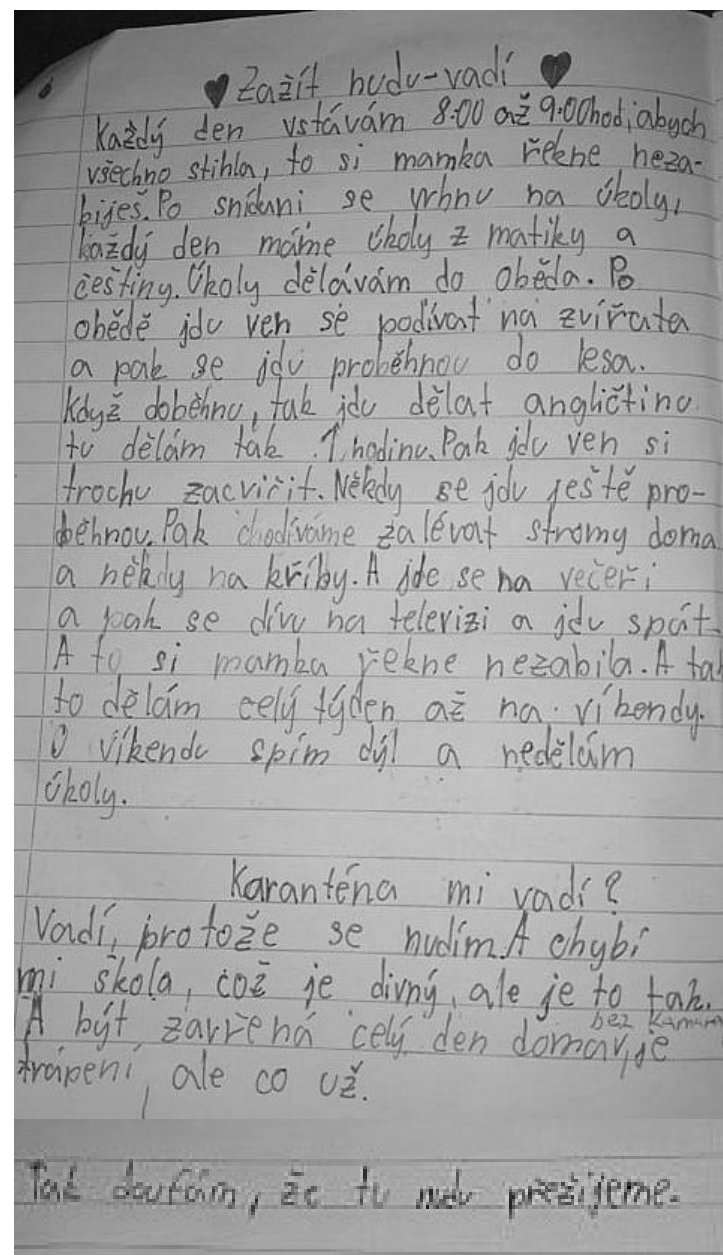 ♥ Zažít nudu-vadí ♥
Každý den vstávám 8:00 až 9:00hod, abych
všechno stihla, to si mamka řekne neza-
biješ. Po snídani se vrhnu na úkoly,
každý den máme úkoly z matiky a
češtiny. Úkoly dělávám do oběda. Po
obědě jdu ven se podívat na zvířata
a pak se jdu proběhnou do lesa.
Když doběhnu, tak jdu dělat angličtinu
tu dělám tak 1 hodinu. Pak jdu ven si
trochu zacvičit. Někdy se jdu ještě pro-
běhnou. Pak chodíváme zalévat stromy doma
a někdy na kříby. A jde se na večeři
a pak se dívu na televizi a jdu spát.
A to si mamka řekne nezabila. A tak
to dělám celý týden až na víkendy.
O víkendu spím dýl a nedělám
úkoly.
Karanténa mi vadí?
Vadí, protože se nudím. A chybí
mi škola, což je divný, ale je to tak.
A být zavřená celý den doma bez kamará, je
trápení, ale co už.
Tak doufám, že tu nudu přežijeme.